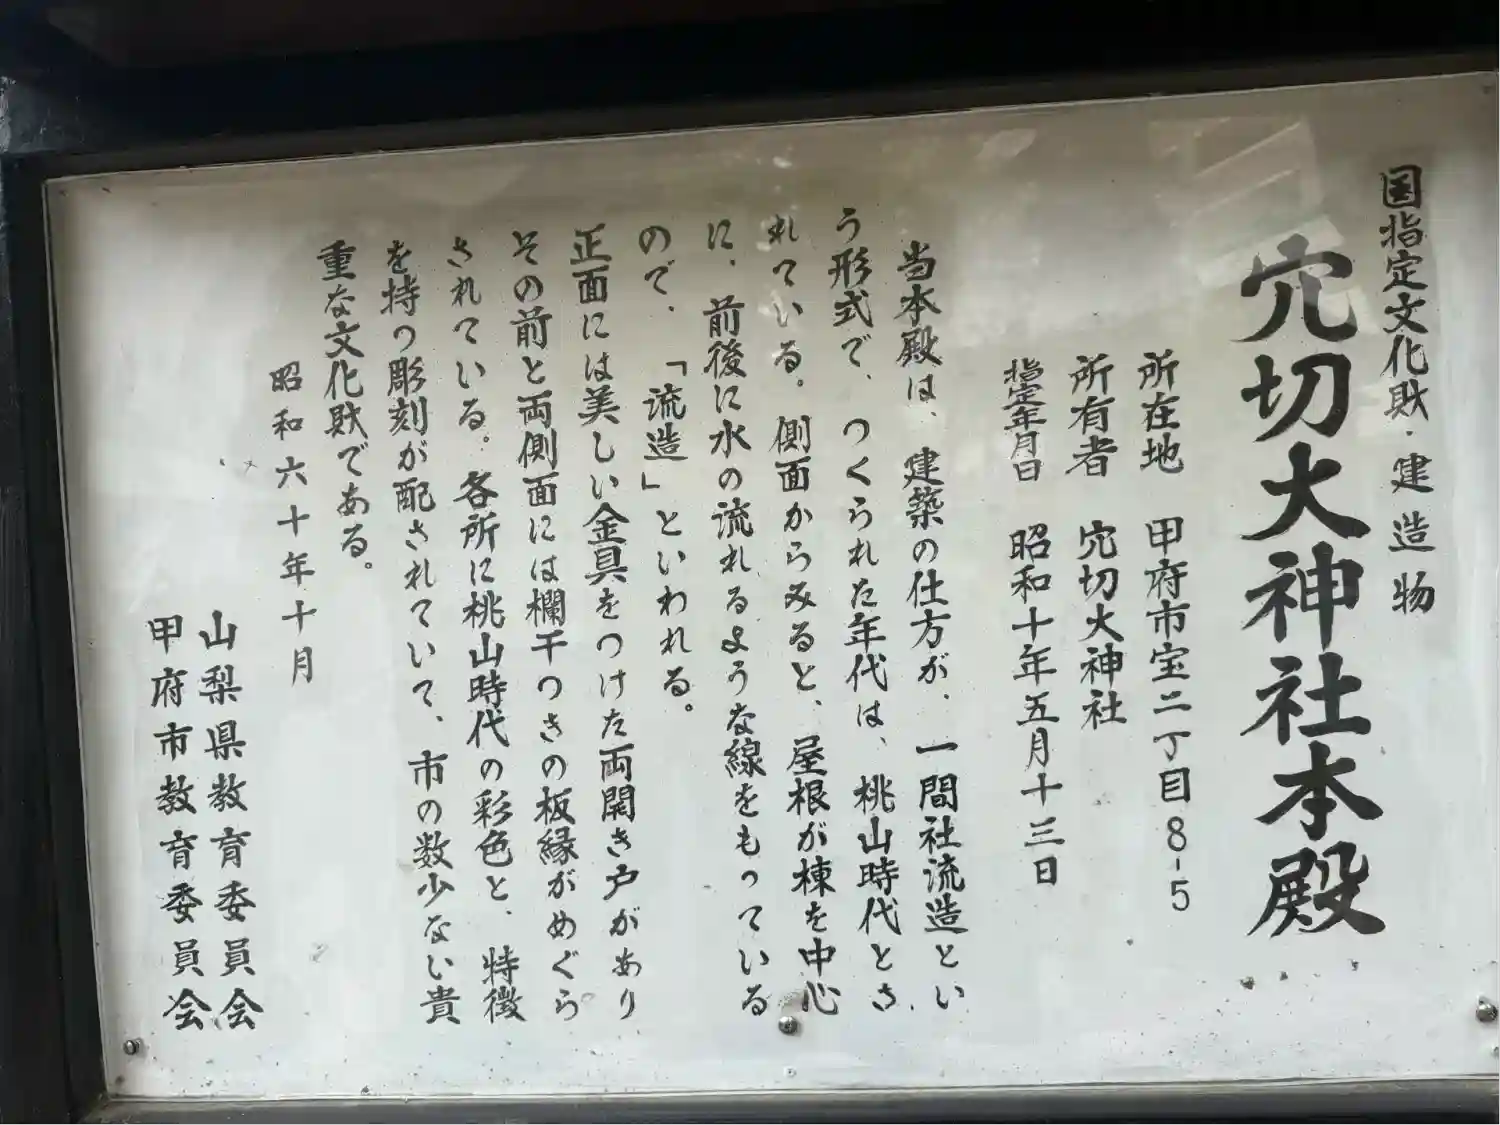 国指定文化財・建造物
穴切大神社本殿
所在地 甲府市宝二丁目8-5
所有者 穴切大神社
指定年月日 昭和十年五月十三日
当本殿は、建築の仕方が、一間社流造とい
う形式で、つくられた年代は、桃山時代とさ
れている。側面からみると、屋根が棟を中心
に、前後に水の流れるような線をもっている
ので、「流造」といわれる。
正面には美しい金具をつけた両開き戸があり
その前と両側面には欄干つきの板縁がめぐら
されている。各所に桃山時代の彩色と、特徴
を持つ彫刻が配されていて、市の数少ない貴
重な文化財である。
昭和六十年十月
山梨県教育委員会
甲府市教育委員会